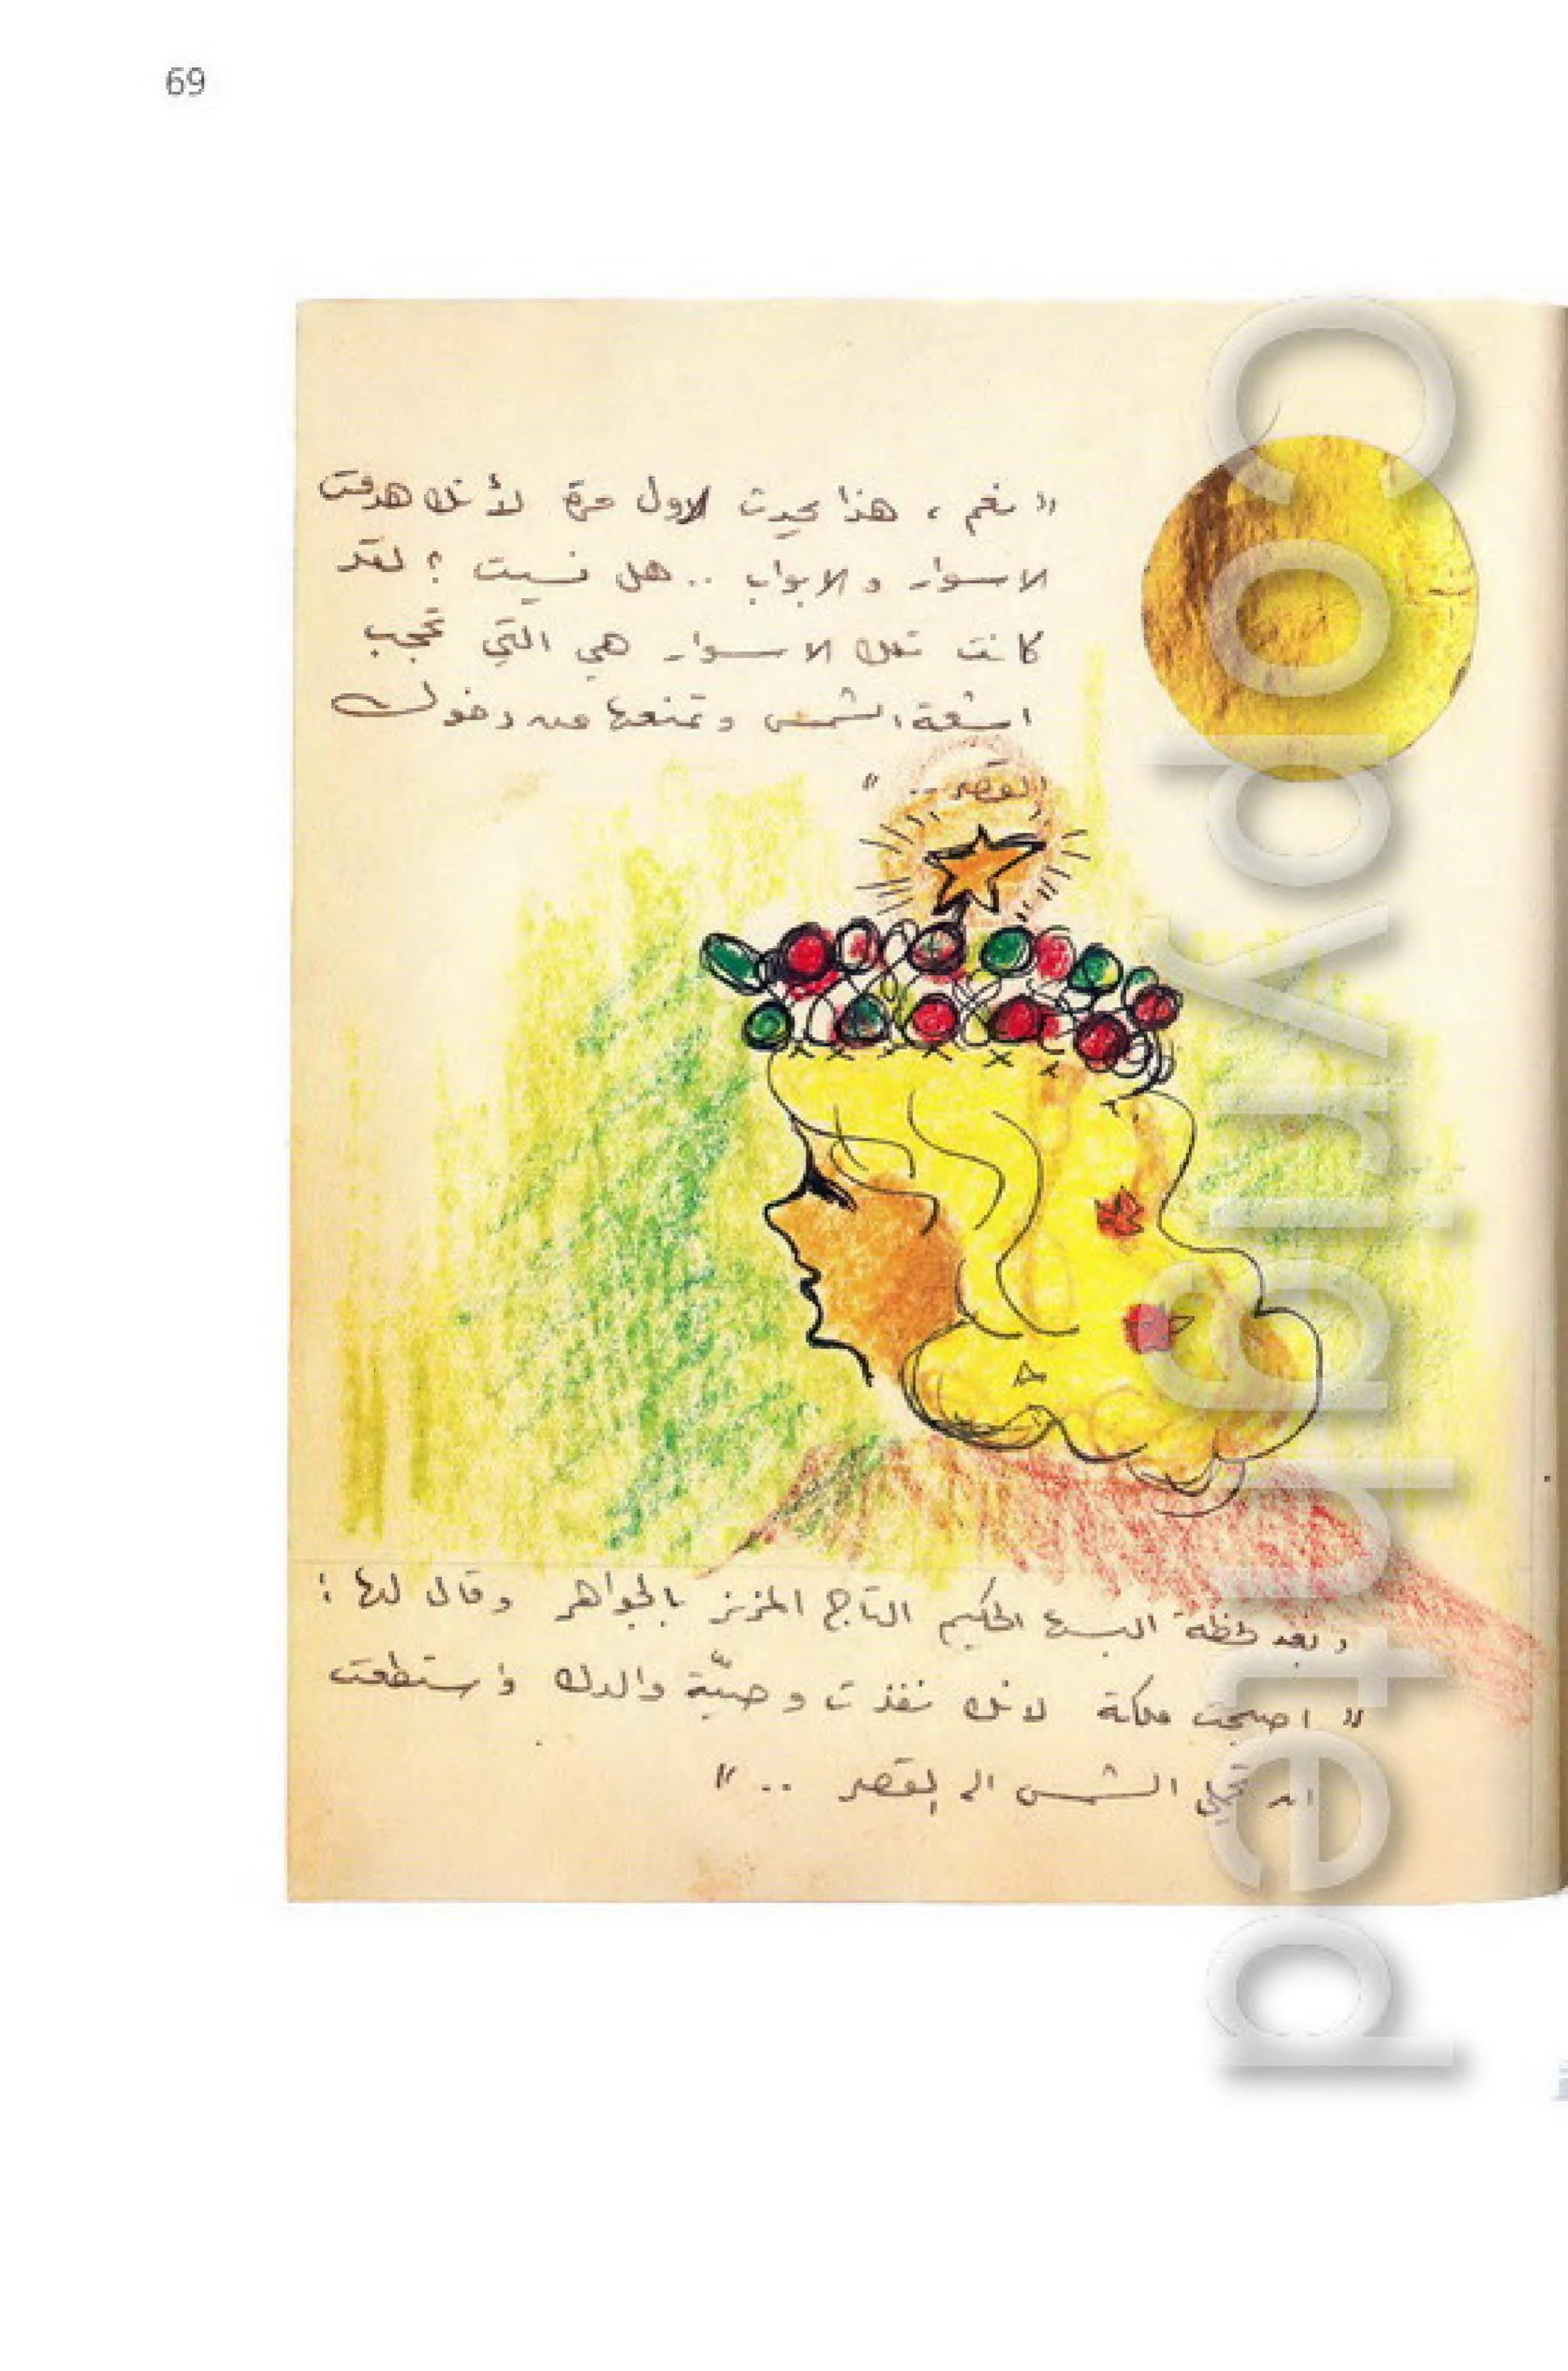 69
" نعم ، هذا يحدث لاول مرة لأنك هدمت
الاسوار والابواب .. هل نسيت ؟ لقد
كانت تلك الاسوار هي التي تحجب
اشعة الشمس وتمنعها من دخول
القصر .. "
وبعد لحظة البسها الحكيم التاج المزين بالجواهر وقال لها :
" اصبحت ملكة لانك نفذت وصيّة والدك واستطعت
ان الشمس الى القصر .. "
Copyrighted